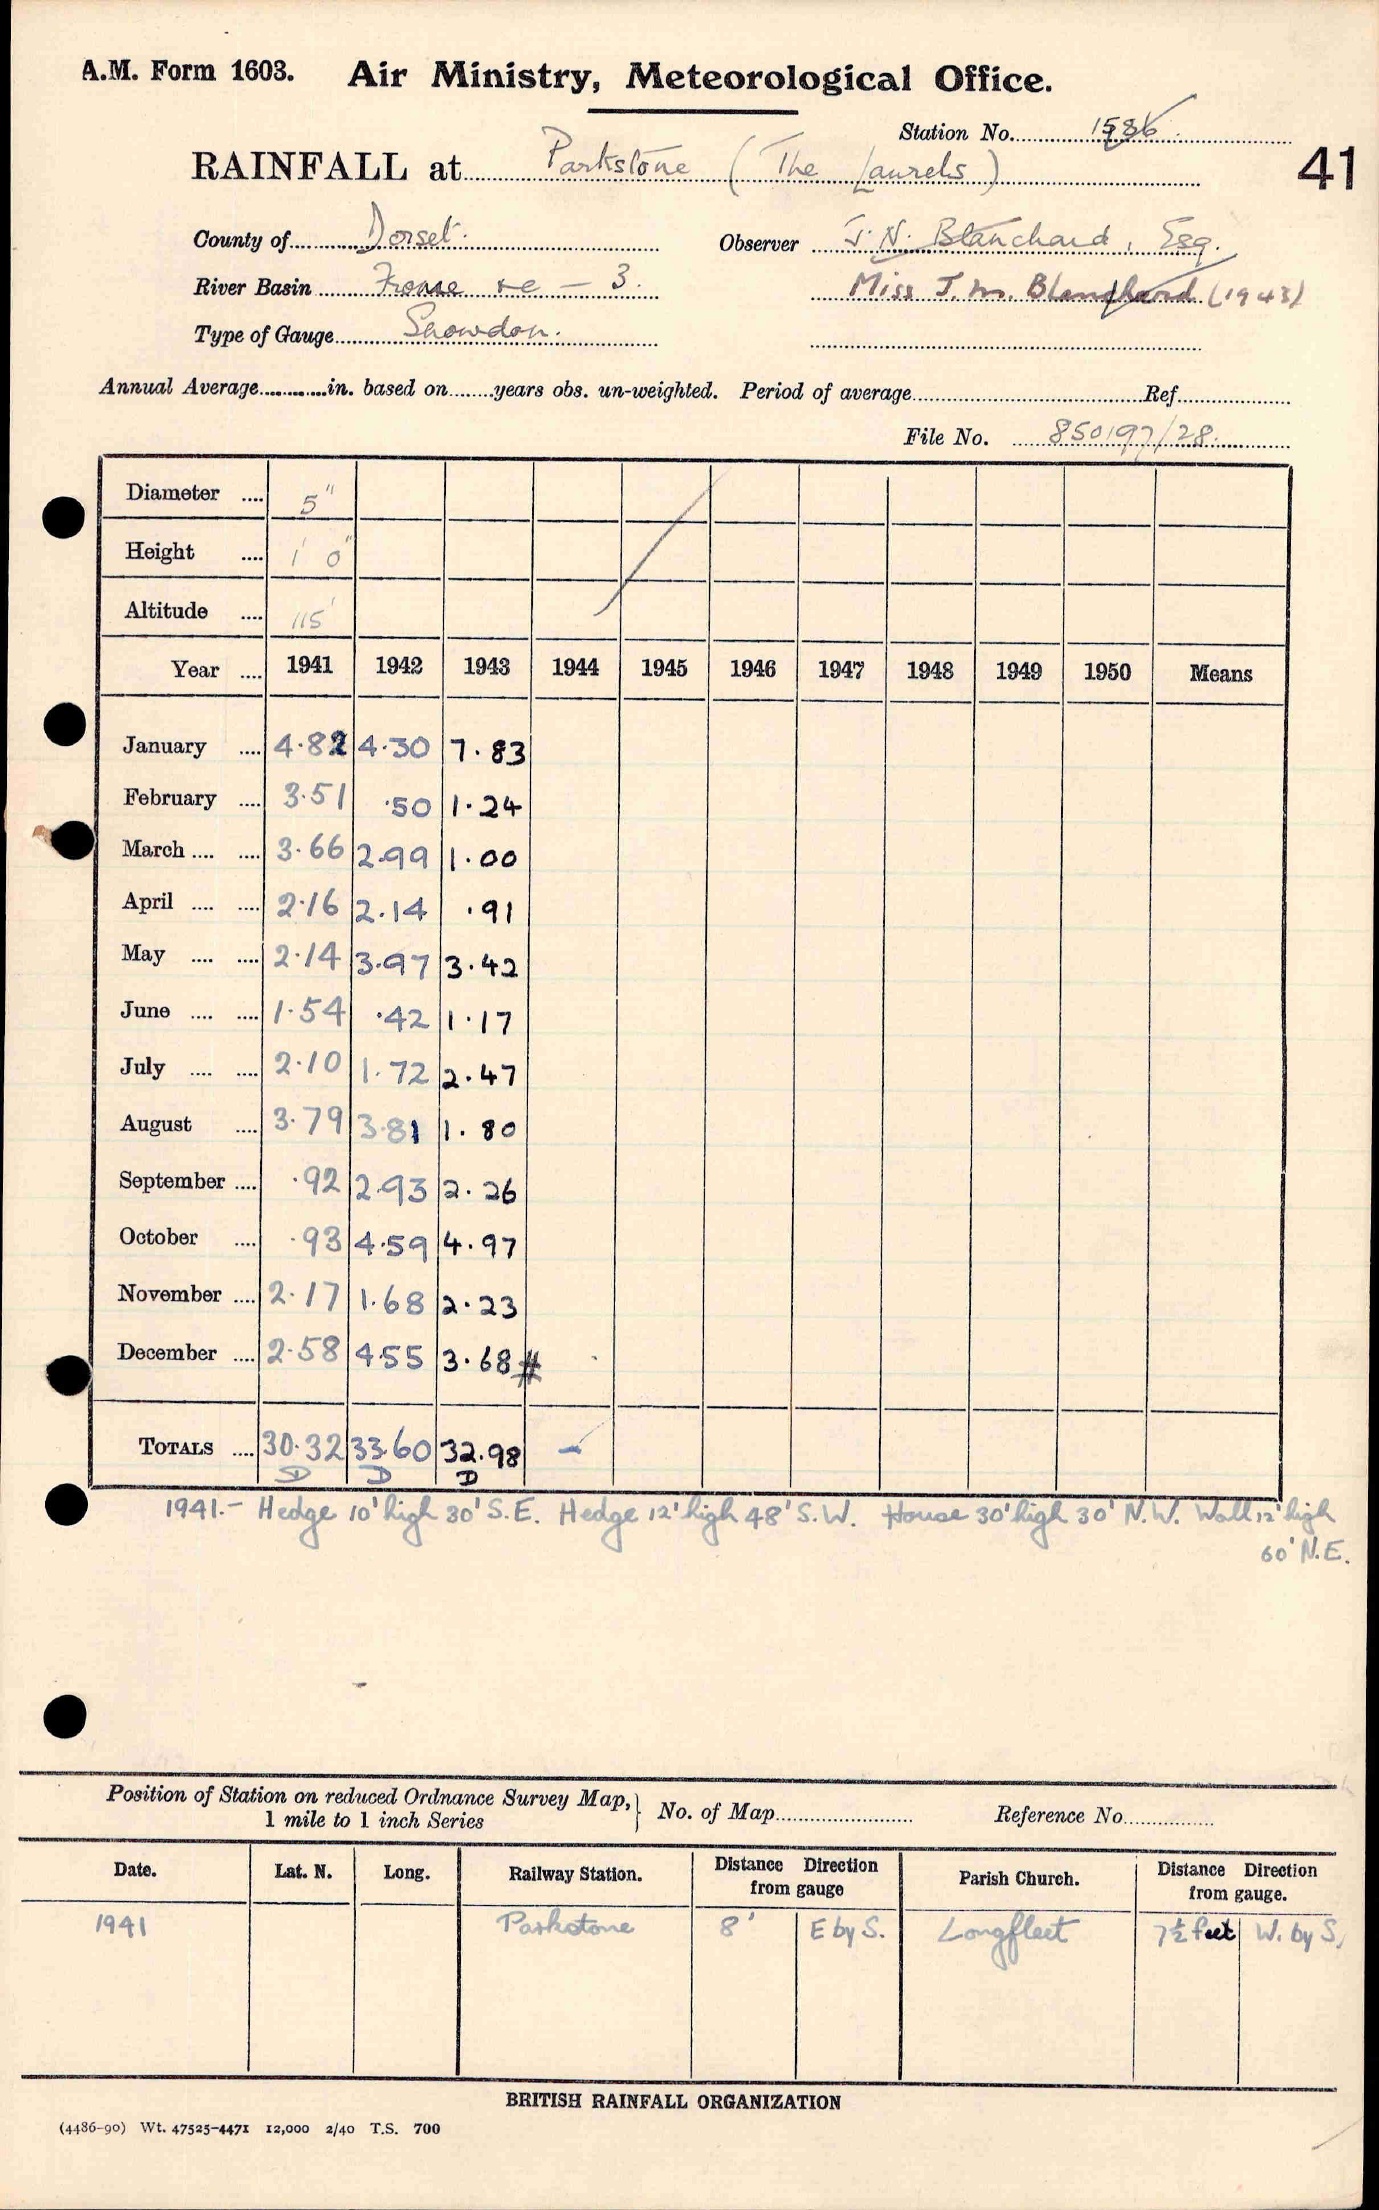 A.M. Form 1603. Air Ministry, Meteorological Office.
Station No. 1586
RAINFALL at Parkstone (The Laurels)
41
County of Dorset. Observer J. N. Blanchard, Esq.
River Basin Frome &c — 3. Miss J. M. Blanchard (1943)
Type of Gauge Snowdon.
Annual Average............in. based on........years obs. un-weighted. Period of average Ref.
File No. 850197/28.
Diameter .... 5"
Height .... 1' 0"
Altitude .... 115'
Year .... 1941 1942 1943 1944 1945 1946 1947 1948 1949 1950 Means
January .... 4.82 4.30 7.83
February .... 3.51 .50 1.24
March .... .... 3.66 2.99 1.00
April .... .... 2.16 2.14 .91
May .... .... 2.14 3.97 3.42
June .... .... 1.54 .42 1.17
July .... .... 2.10 1.72 2.47
August .... 3.79 3.81 1.80
September .... .92 2.93 2.26
October .... .93 4.59 4.97
November .... 2.17 1.68 2.23
December .... 2.58 4.55 3.68 #
TOTALS .... 30.32 33.60 32.98 -
D D D
1941.- Hedge 10' high 30' S.E. Hedge 12' high 48' S.W. House 30' high 30' N.W. Wall 12' high
60' N.E.
Position of Station on reduced Ordnance Survey Map,} No. of Map Reference No.
1 mile to 1 inch Series
Date. Lat. N. Long. Railway Station. Distance Direction Parish Church. Distance Direction
from gauge from gauge.
1941 Parkstone 8' E by S. Longfleet 7½ feet W. by S.
BRITISH RAINFALL ORGANIZATION
(4486-90) Wt. 47525-4471 12,000 2/40 T.S. 700